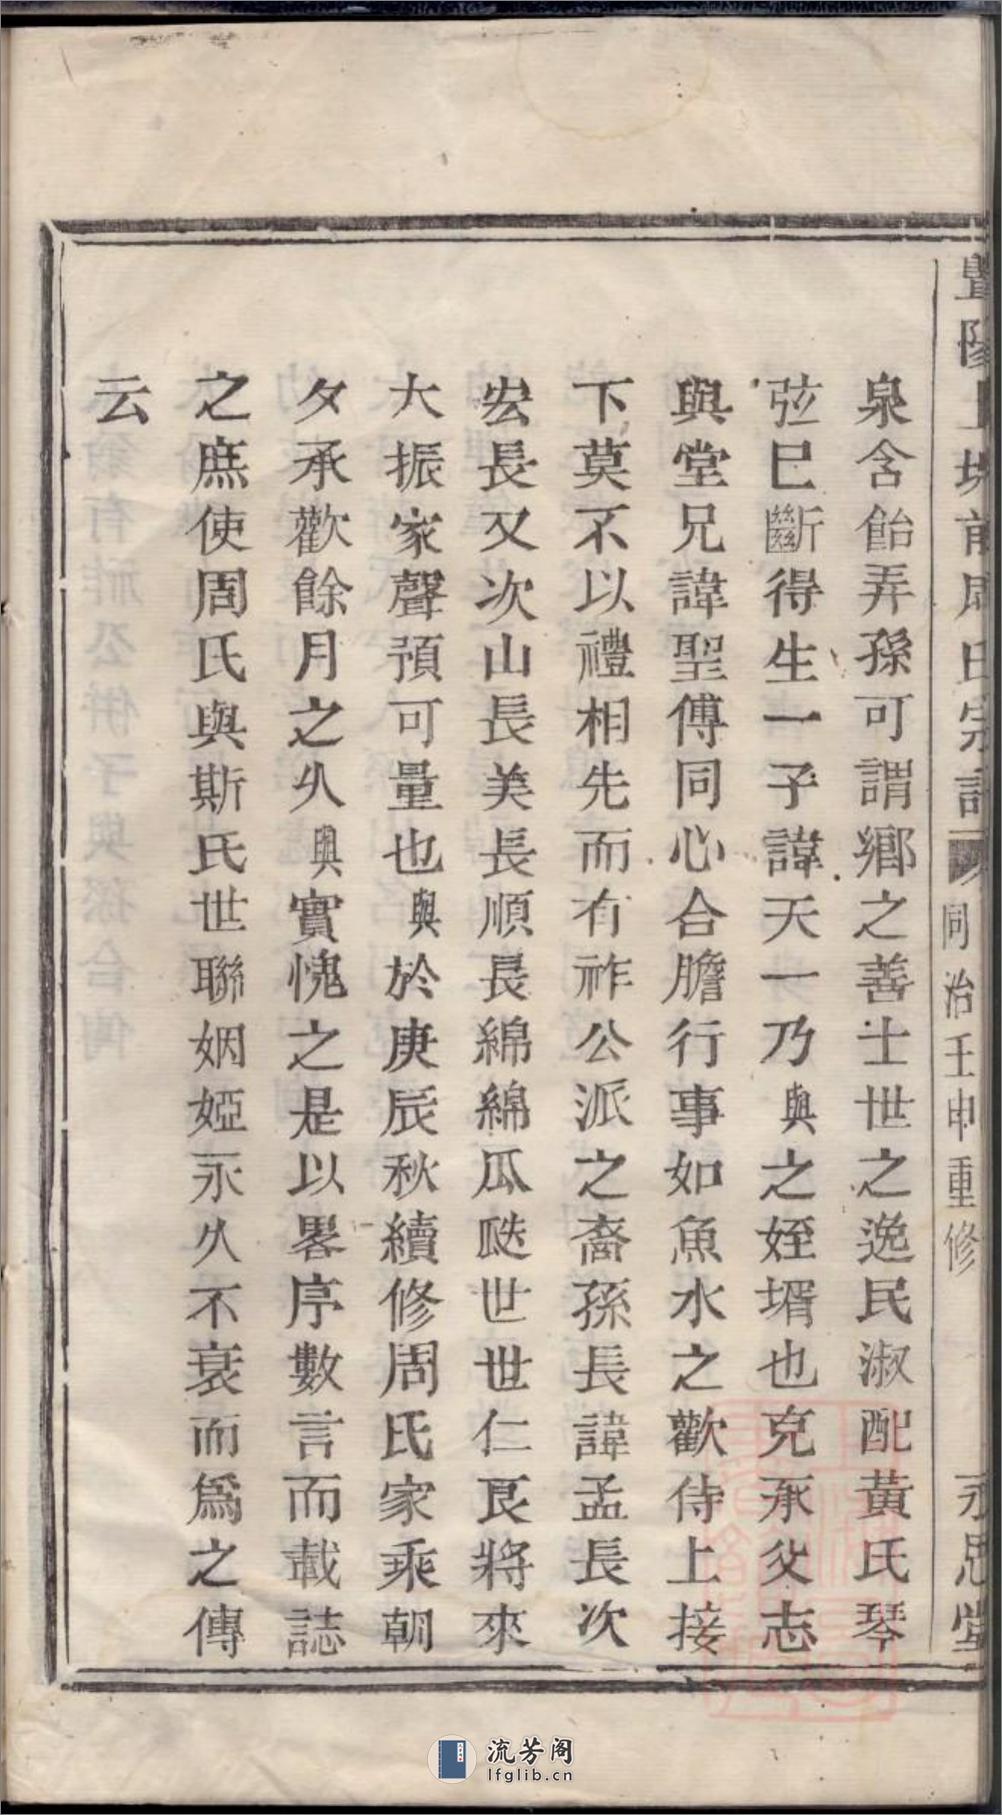 暨陽上墳前周氏宗譜 同治壬申重修 永思堂
泉含飴弄孫可謂鄉之善士世之逸民淑配黃氏琴
弦巳斷得生一子諱天一乃與之姪壻也克承父志
與堂兄諱聖傅同心合膽行事如魚水之歡侍上接
下莫不以禮相先而有祚公派之裔孫長諱孟長次
宏長又次山長美長順長綿綿瓜瓞世世仁良將來
大振家聲預可量也與於庚辰秋續修周氏家乘朝
夕承歡餘月之久與實愧之是以畧序數言而載誌
之庶使周氏與斯氏世聯姻婭永久不衰而爲之傳
云
流芳阁
lfglib.cn